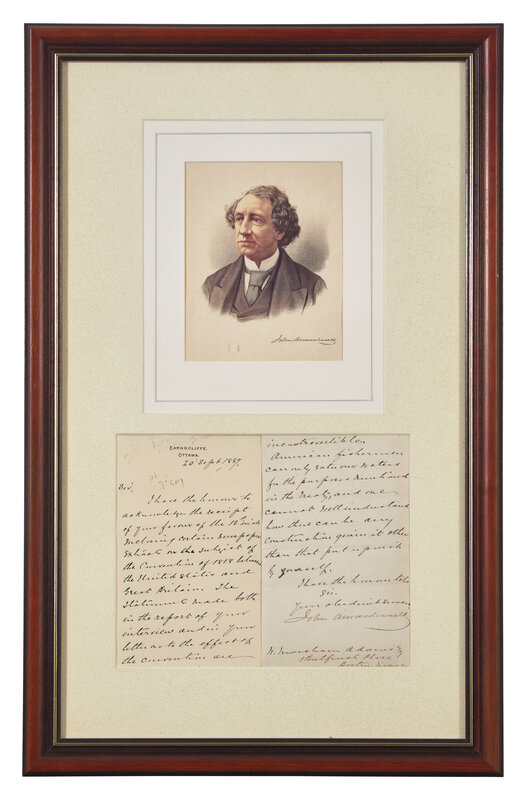 John A Macdonald
EARNSCLIFFE,
OTTAWA
20 Sept. 1887.
Sir,
I have the honour to
acknowledge the receipt
of your favour of the 16th inst.
inclosing certain newspaper
extracts on the subject of
the Convention of 1818 between
the United States and
Great Britain. The
Statements made both
in the report of your
interview and in your
letter as to the effect of
the convention are
incontrovertible.
American fishermen
can only enter our waters
for the purposes mentioned
in the Treaty and one
cannot well understand
how there can be any
construction given it other
than that put upon it
by yourself.
I have the honour to be
Sir.
Your obedient Servant
John A Macdonald
Adams
Bulfinch Place
Boston, Mass.